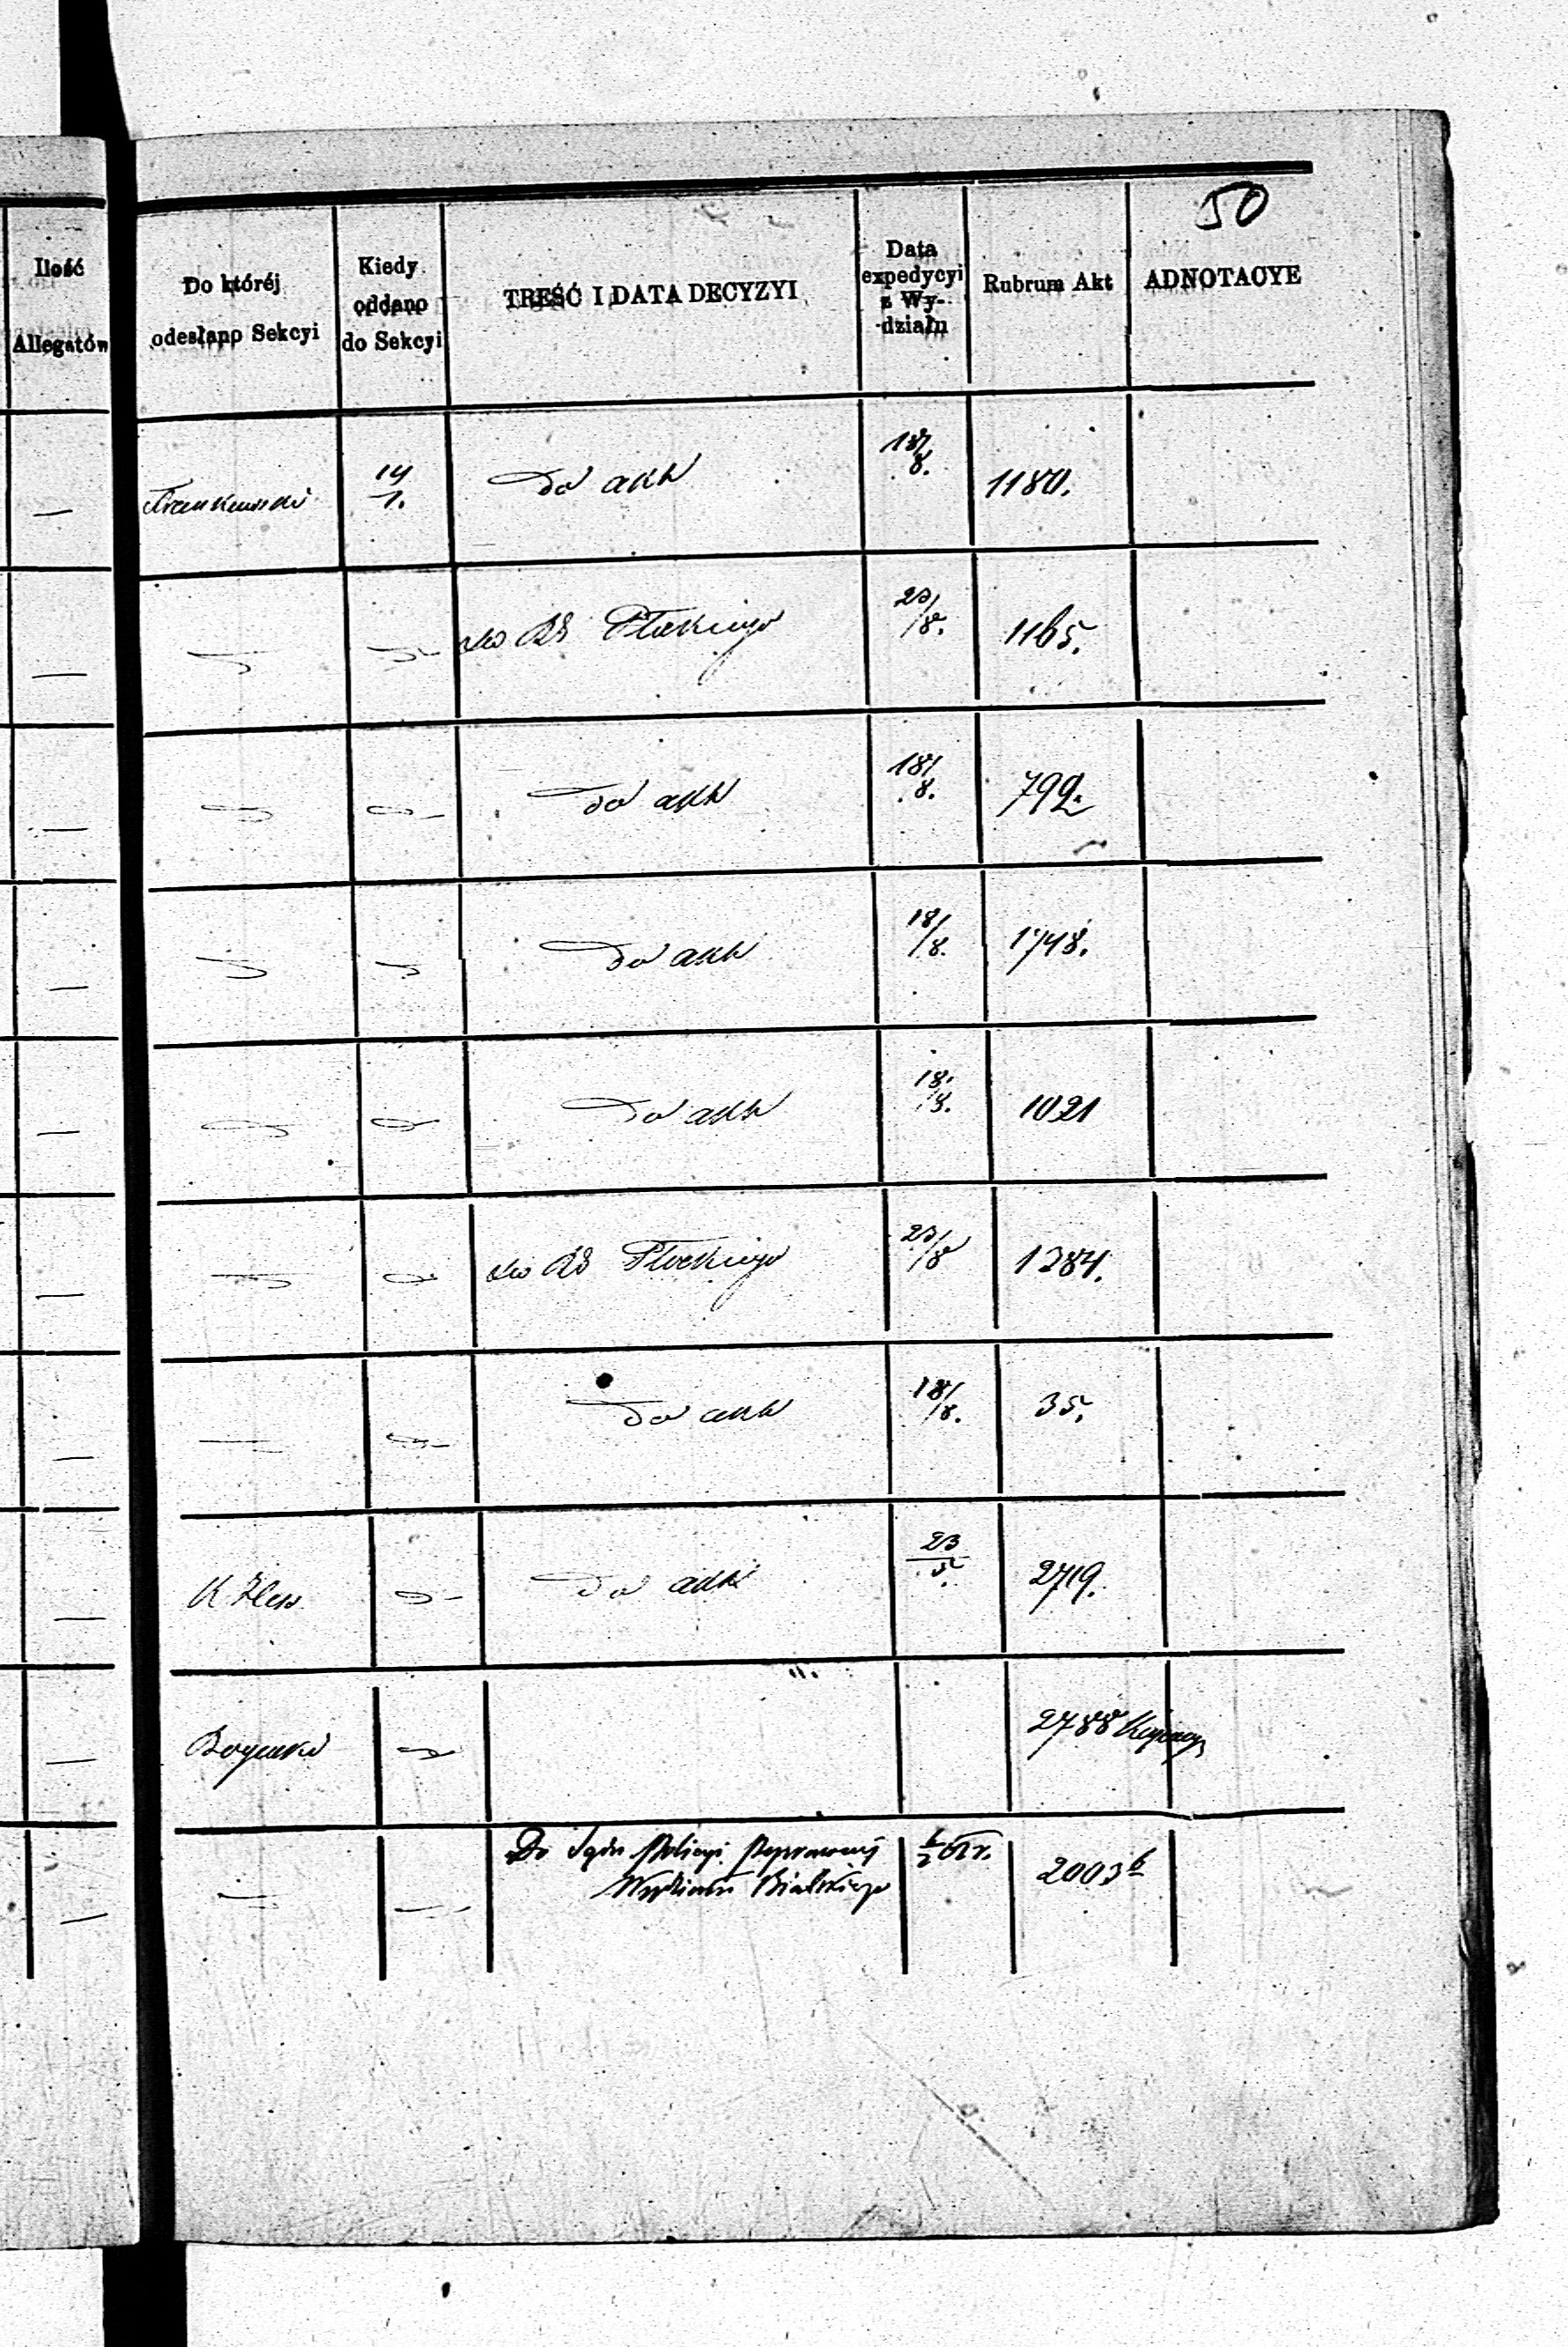 50
Ilość
Allegatów
Do któréj
odesłano Sekcyi
Kiedy
oddano
do Sekcyi
TREŚĆ I DATA DECYZYI
Data
expedycyi
z Wy-
działu
Rubrum Akt
ADNOTACYE
— 14/1. Do akt 18/8. 1180.
— Płockiego 23/8. 1165.
— Do akt 18/8. 792.
— Do akt 18/8. 1748.
— Do akt 18/8. 1021
— Płockiego 23/8 1384.
— Do akt 18/8. 35.
— Do akt 23/5. 2719.
— 2788
— Do Sądu Policyi Poprawczej
Wydziału Bialskiego 2003